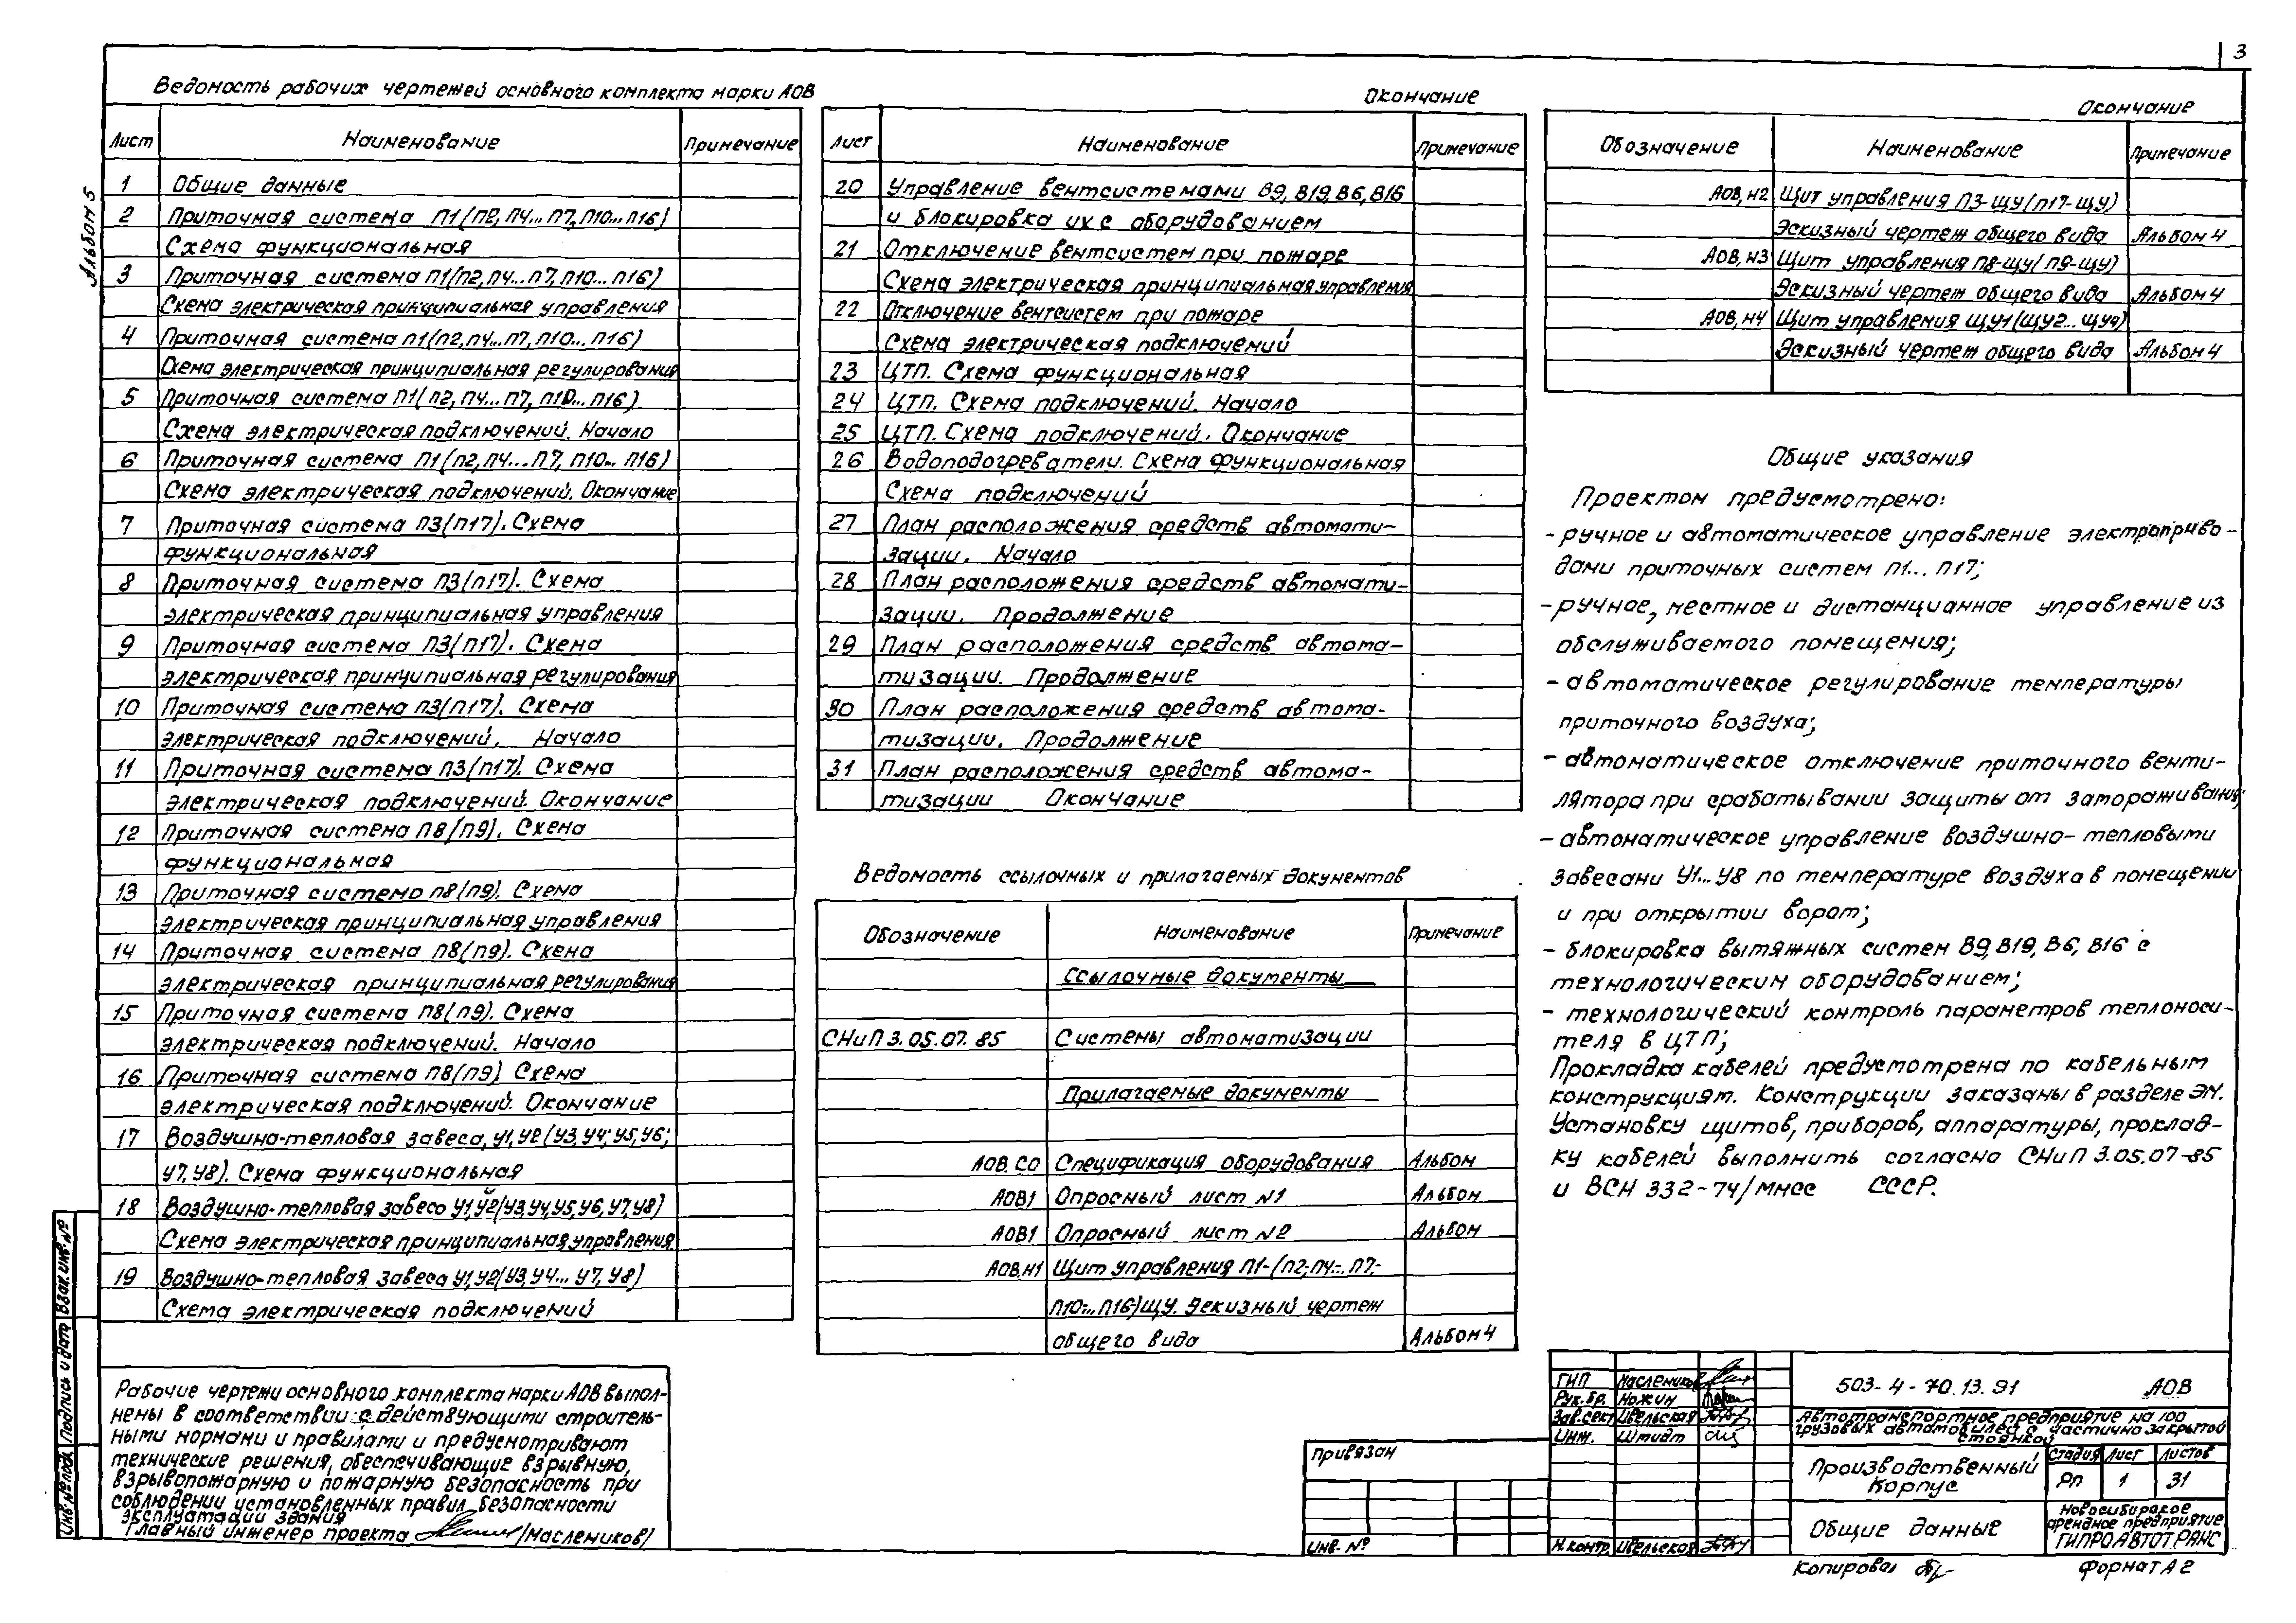 3
Альбом 5
Ведомость рабочих чертежей основного комплекта марки АОВ
Лист Наименование Примечание
1 Общие данные
2 Приточная система П1(П2, П4...П7, П10...П16)
Схема функциональная
3 Приточная система П1(П2, П4...П7, П10...П16)
Схема электрическая принципиальная управления
4 Приточная система П1(П2, П4...П7, П10...П16)
Схема электрическая принципиальная регулирования
5 Приточная система П1(П2, П4...П7, П10...П16)
Схема электрическая подключений. Начало
6 Приточная система П1(П2, П4...П7, П10...П16)
Схема электрическая подключений. Окончание
7 Приточная система П3(П17). Схема
функциональная
8 Приточная система П3(П17). Схема
электрическая принципиальная управления
9 Приточная система П3(П17). Схема
электрическая принципиальная регулирования
10 Приточная система П3(П17). Схема
электрическая подключений. Начало
11 Приточная система П3(П17). Схема
электрическая подключений. Окончание
12 Приточная система П8(П9). Схема
функциональная
13 Приточная система П8(П9). Схема
электрическая принципиальная управления
14 Приточная система П8(П9). Схема
электрическая принципиальная регулирования
15 Приточная система П8(П9). Схема
электрическая подключений. Начало
16 Приточная система П8(П9) Схема
электрическая подключений. Окончание
17 Воздушно-тепловая завеса, У1, У2(У3, У4; У5, У6;
У7, У8). Схема функциональная
18 Воздушно-тепловая завеса У1, У2(У3, У4, У5, У6, У7, У8)
Схема электрическая принципиальная управления
19 Воздушно-тепловая завеса У1, У2(У3, У4... У7, У8)
Схема электрическая подключений
Окончание
Лист Наименование Примечание
20 Управление вентсистемами В9, В19, В6, В16
и блокировка их с оборудованием
21 Отключение вентсистем при пожаре
Схема электрическая принципиальная управления
22 Отключение вентсистем при пожаре
Схема электрическая подключений
23 ЦТП. Схема функциональная
24 ЦТП. Схема подключений. Начало
25 ЦТП. Схема подключений. Окончание
26 Водоподогреватели. Схема функциональная
Схема подключений
27 План расположения средств автомати-
зации. Начало
28 План расположения средств автомати-
зации. Продолжение
29 План расположения средств автома-
тизации. Продолжение
30 План расположения средств автома-
тизации. Продолжение
31 План расположения средств автома-
тизации Окончание
Ведомость ссылочных и прилагаемых документов
Обозначение Наименование Примечание
Ссылочные документы
СНиП 3.05.07.85 Системы автоматизации
Прилагаемые документы
АОВ.СО Спецификация оборудования Альбом
АОВ1 Опросный лист №1 Альбом
АОВ1 Опросный лист №2 Альбом
АОВ.Н1 Щит управления П1-(П2-, П4-... П7-
П10-...П16-)ЩУ. Эскизный чертеж
общего вида Альбом 4
Окончание
Обозначение Наименование Примечание
АОВ, Н2 Щит управления П3-ЩУ(П17-ЩУ)
Эскизный чертеж общего вида Альбом 4
АОВ, Н3 Щит управления П8-ЩУ(П9-ЩУ)
Эскизный чертеж общего вида Альбом 4
АОВ, Н4 Щит управления ЩУ1(ЩУ2...ЩУ4)
Эскизный чертеж общего вида Альбом 4
Общие указания
Проектом предусмотрено:
- ручное и автоматическое управление электроприво-
дами приточных систем П1... П17;
- ручное, местное и дистанционное управление из
обслуживаемого помещения;
- автоматическое регулирование температуры
приточного воздуха;
- автоматическое отключение приточного венти-
лятора при срабатывании защиты от замораживания;
- автоматическое управление воздушно-тепловыми
завесами У1...У8 по температуре воздуха в помещении
и при открытии ворот;
- блокировка вытяжных систем В9, В19, В6, В16 с
технологическим оборудованием;
- технологический контроль параметров теплоноси-
теля в ЦТП;
Прокладка кабелей предусмотрена по кабельным
конструкциям. Конструкции заказаны в разделе ЭМ.
Установку щитов, приборов, аппаратуры, проклад-
ку кабелей выполнить согласно СНиП 3.05.07-85
и ВСН 332-74/ММСС СССР.
Рабочие чертежи основного комплекта марки АОВ выпол-
нены в соответствии с действующими строитель-
ными нормами и правилами и предусматривают
технические решения, обеспечивающие взрывную,
взрывопожарную и пожарную безопасность при
соблюдении установленных правил безопасности
эксплуатации здания
Главный инженер проекта /Маслеников/
Инв.№ подл. Подпись и дата Взам. инв. №
Привязан
Инв. №
ГИП Маслеников
Рук. бр. Ножин
Зав. сект Ивельская
Инж. Штидт
Н.контр. Ивельская
503-4-70.13.91 АОВ
Автотранспортное предприятие на 100
грузовых автомобилей с частично закрытой
стоянкой
Производственный
Корпус
Стадия Лист Листов
РП 1 31
Общие данные
Новосибирское
арендное предприятие
ГИПРОАВТОТРАНС
Копировал
Формат А2